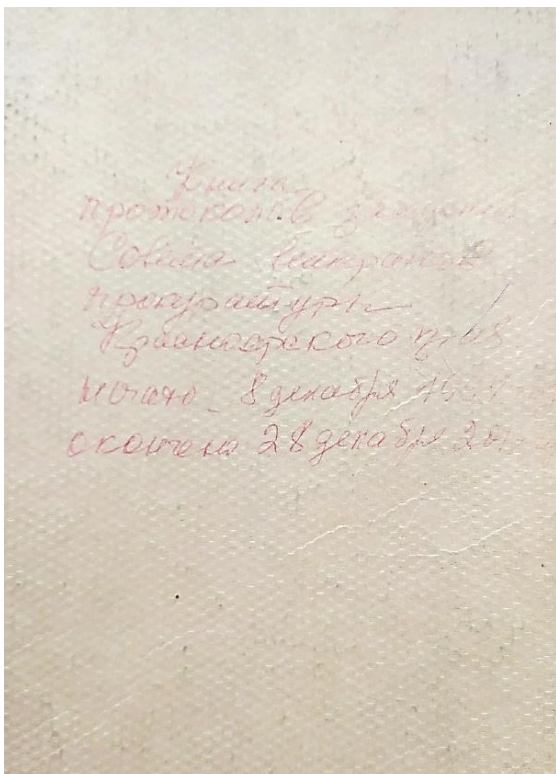 Книга
протоколов заседаний
Совета ветеранов
прокуратуры
Красноярского края
начато 8 декабря
окончено 28 декабря